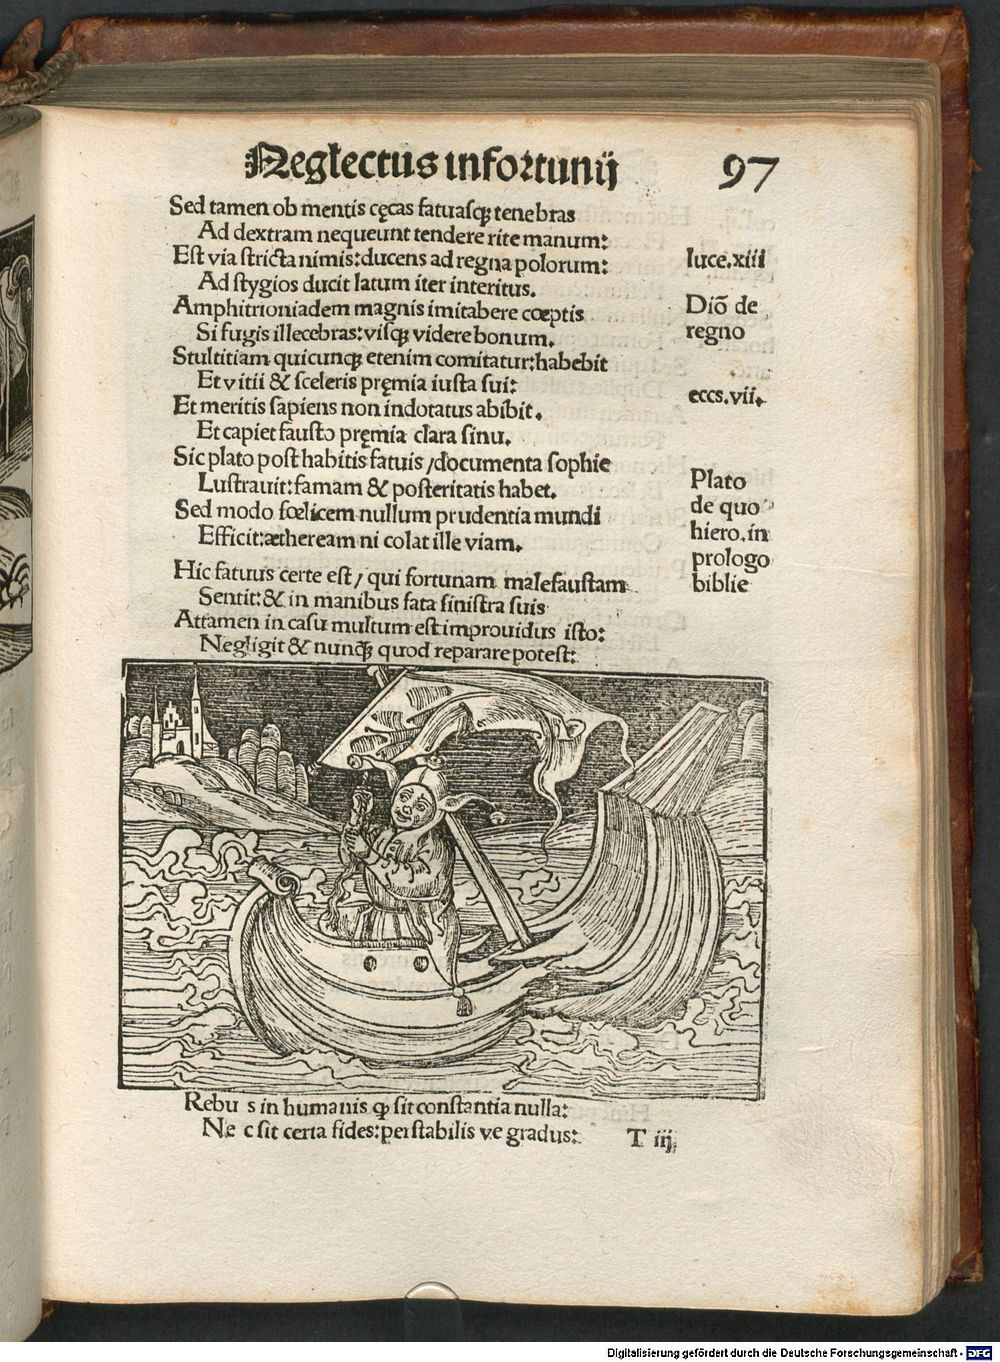 Neglectus infortunij 97
Sed tamen ob mentis cęcas fatuasqꝫ tenebras
Ad dextram nequeunt tendere rite manum:
Est via stricta nimis: ducens ad regna polorum: luce.xiii
Ad stygios ducit latum iter interitus.
Amphitrioniadem magnis imitabere cœptis Diō de
Si fugis illecebras: visqꝫ videre bonum. regno
Stultitiam quicunqꝫ etenim comitatur: habebit
Et vitii & sceleris pręmia iusta sui: eccs.vii.
Et meritis sapiens non indotatus abibit.
Et capiet fausto pręmia clara sinu.
Sic plato post habitis fatuis / documenta sophie Plato
Lustrauit: famam & posteritatis habet. de quo
Sed modo fœlicem nullum prudentia mundi hiero. in
Efficit: ætheream ni colat ille viam. prologo
Hic fatuus certe est / qui fortunam malefaustam biblie
Sentit: & in manibus fata sinistra suis
Attamen in casu multum est improuidus isto:
Negligit & nunqꝫ quod reparare potest:
Rebu s in humanis ꝙ sit constantia nulla:
Ne c sit certa fides: perstabilis ve gradus: T iij
Digitalisierung gefördert durch die Deutsche Forschungsgemeinschaft - DFG